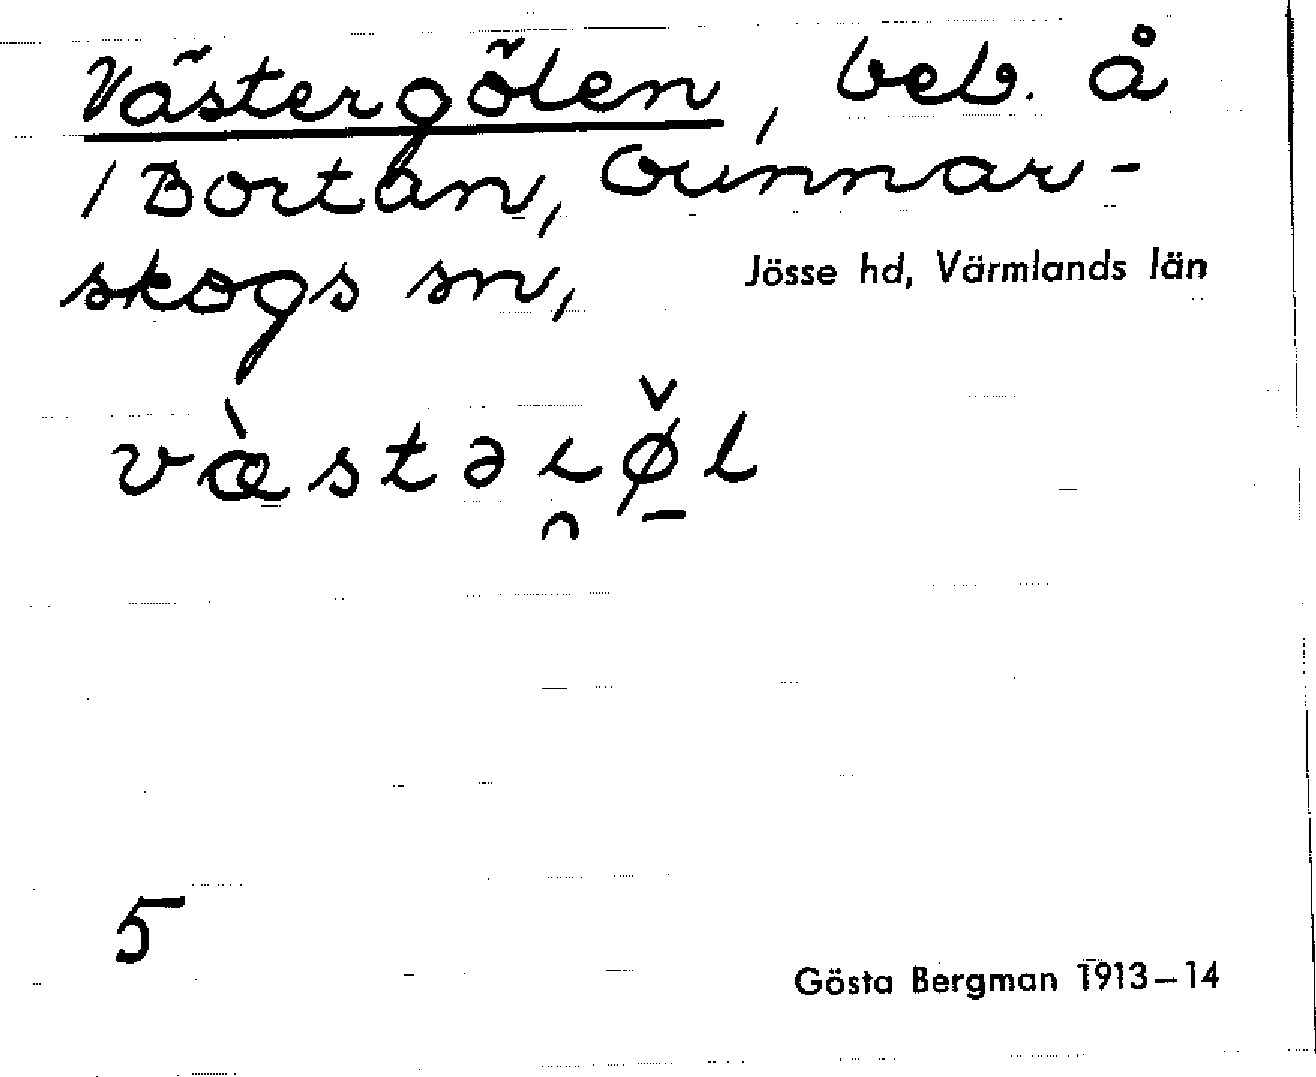 Västergölen, beb. å
/ Bortan, Gunnar-
skogs sn,
Jösse hd, Värmlands län
5
Gösta Bergman 1913–14